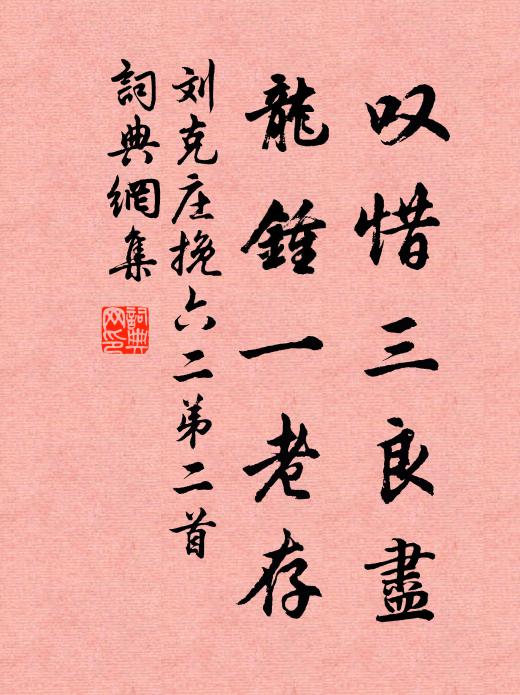 叹惜三良盡
龍鍾一老存
刘克庄挽六二弟二首
詞典網集
詞典网印